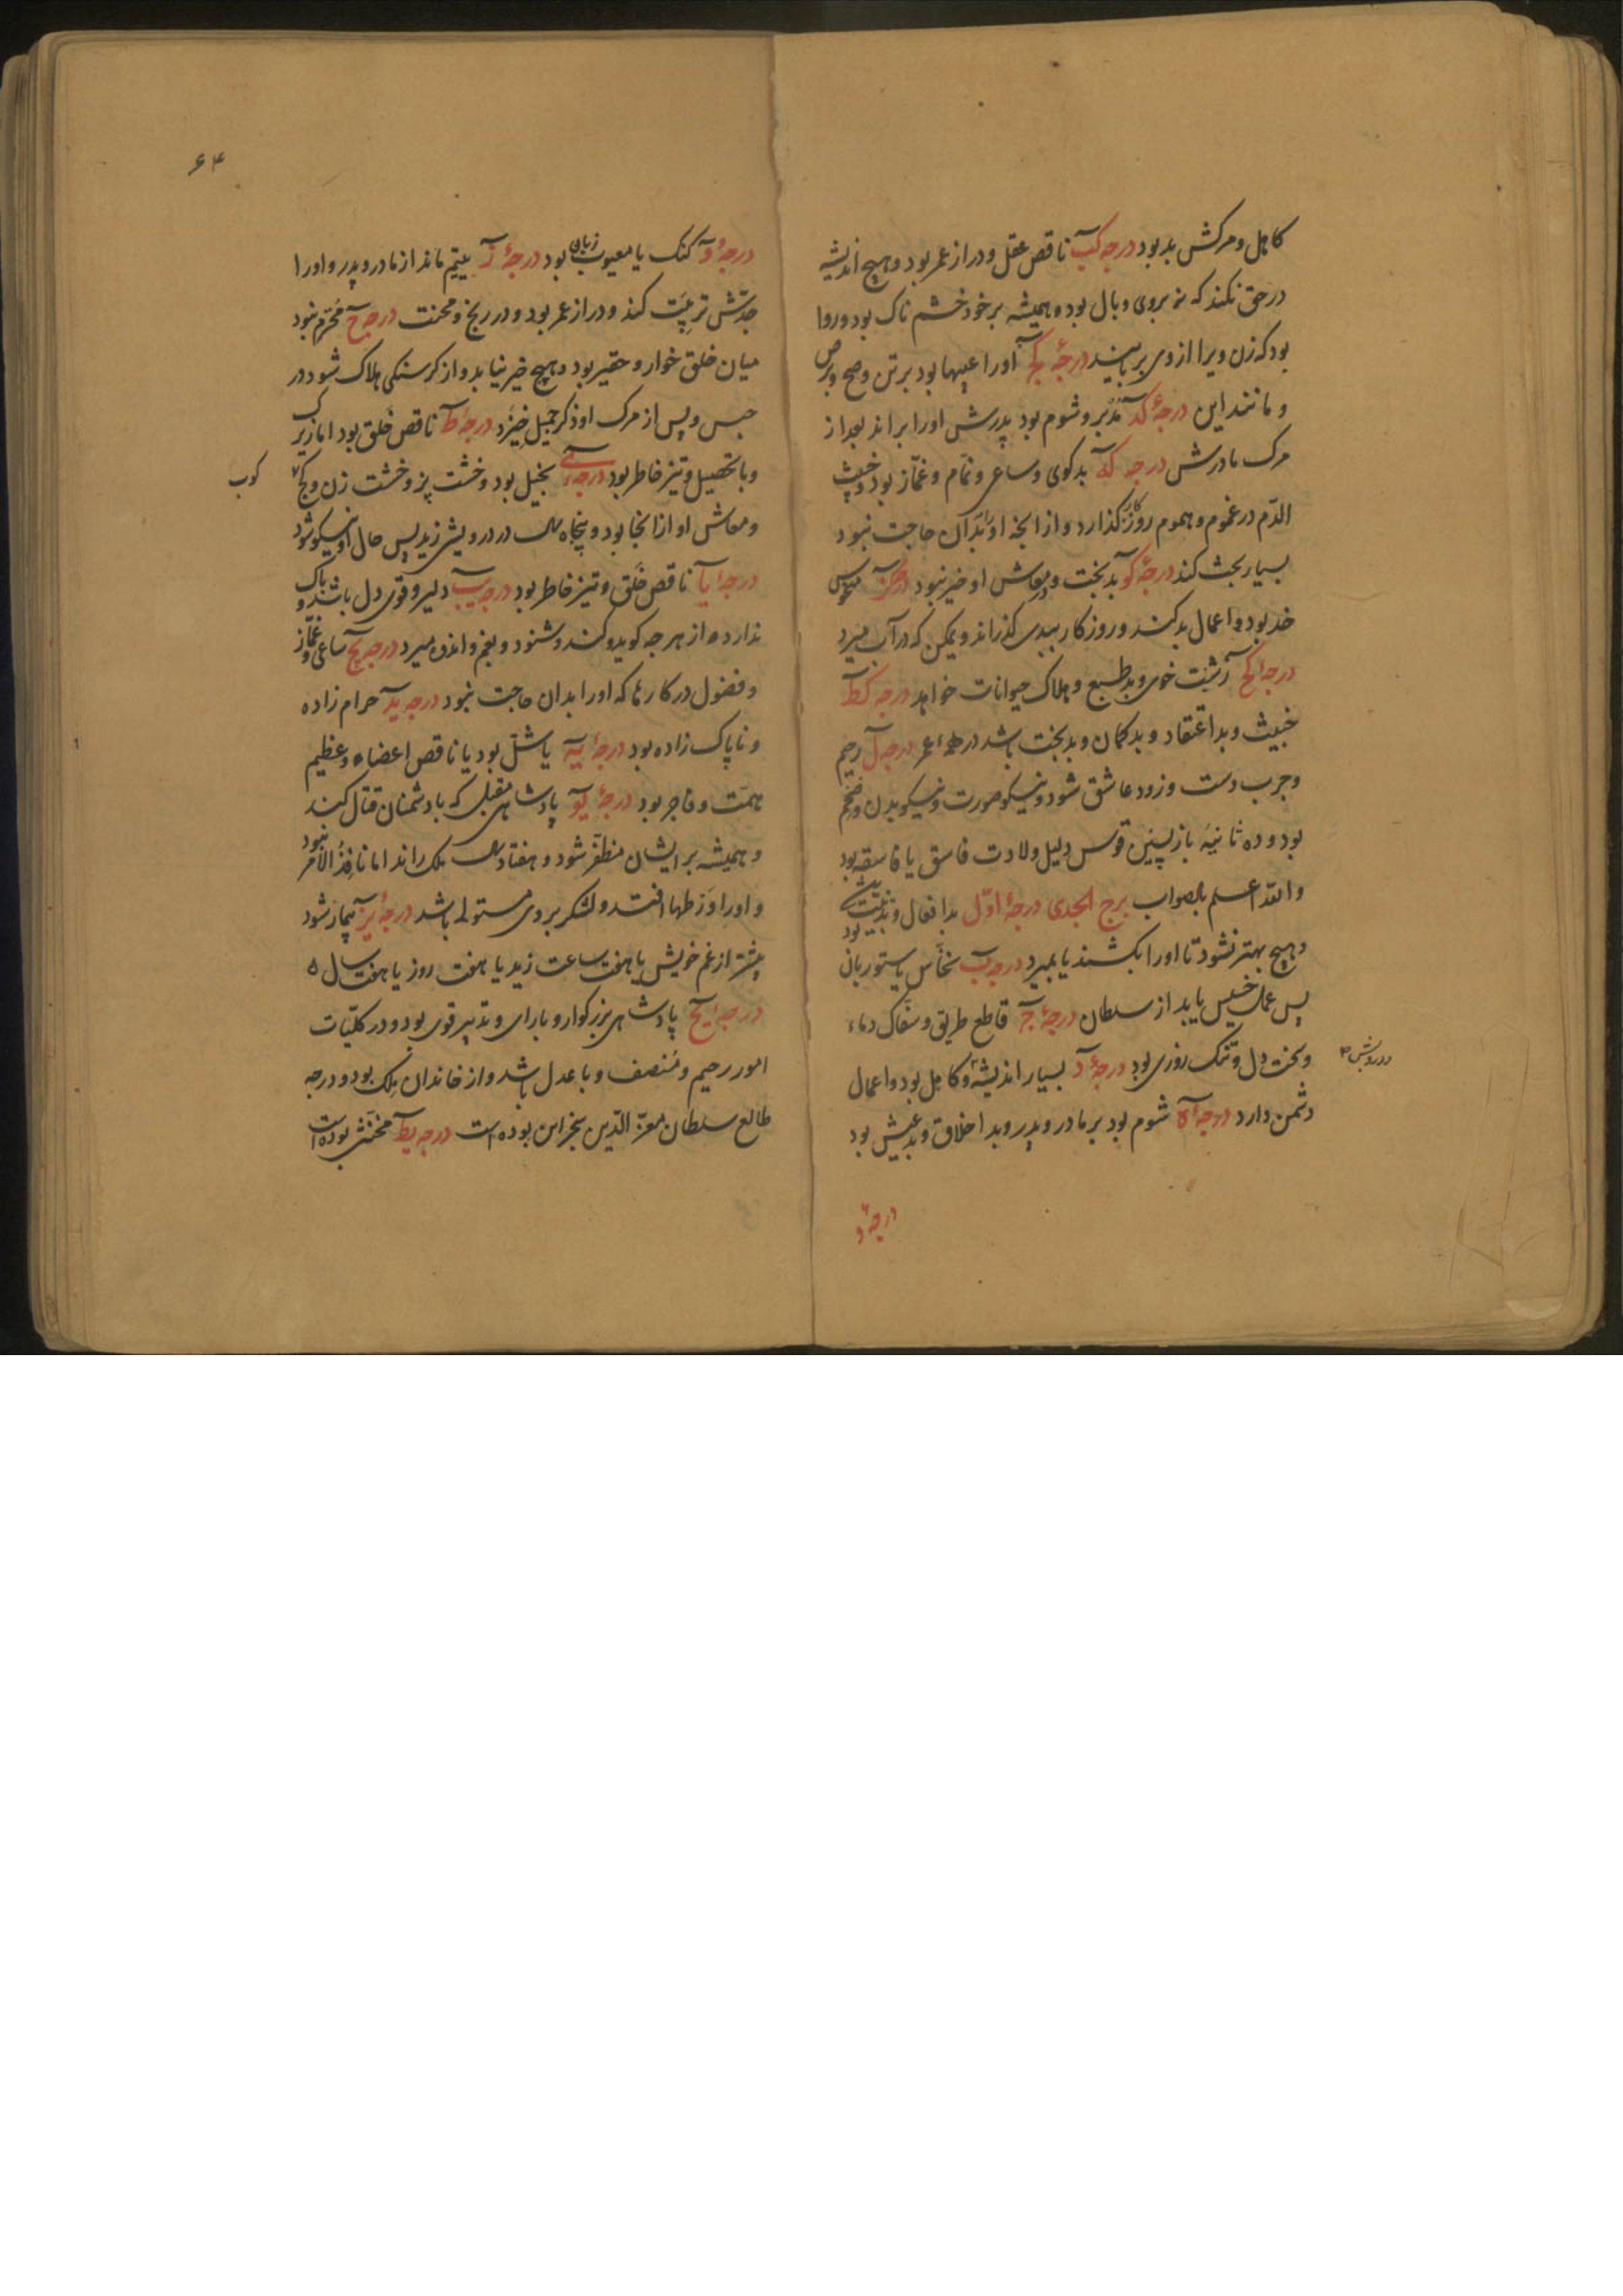 کاهل و مرکش بد بود درجه کب ناقص عقل و دراز عمر بود و هیچ اندیشه
در حق نکند که نه بروی وبال بود و همیشه بر خود خشم ناک بود و روا
بود که زن ویرا از وی برباید درجهٔ کج اورا عیبها بود بر تن وضح و برص
و مانند این درجهٔ کد مدبر و شوم بود پدرش اورا براند بعد از
مرک مادرش درجه که بدکوی و ساعی و نمام و غماز بود و خبیث
الدم در غموم و هموم روزکار گذارد و از آنچه اورا بدان حاجت نبود
بسیار بحث کند درجهٔ کو بدبخت و در معاش او خیر نبود درجه کز
خد بود و اعمال بد کند و روزکار ببدی گذراند و یمکن که در آب میرد
درجهٔ کح زشت خوی و بد طبع و هلاک حیوانات خواهد درجه کط
خبیث و بد اعتقاد و بدکمان و بدبخت باشد در همهٔ عمر درجه ل رحیم
و چرب دست و زود عاشق شود و نیکو صورت و نیکو بدن و ضخم
بود و ده ثانیهٔ بازپسین قوس دلیل ولادت فاسق یا فاسقه بود
والله اعلم بالصواب برج الجدی درجهٔ اوّل بد افعال و بد نیت بود
و هیچ بهتر نشود تا اورا بکشند یا بمیرد درجه ب نخاس یا ستوربان
پس عمل خسیس یابد از سلطان درجهٔ ج قاطع طریق و سفاک دماء
و سخت دل و تنک روزی بود درجهٔ د بسیار اندیشه و کاهل بود و اعمال
دشمن دارد درجهٔ ه شوم بود بر مادر و پدر و بد اخلاق و بد عیش بود
درجهٔ و
۶۴
درجهٔ و کنک یا معیوب زبان بود درجهٔ ز یتیم ماند از مادر و پدر و اورا
جدّش تربیت کند و دراز عمر بود و در رنج و محنت درجه ح محترم نبود
میان خلق خوار و حقیر بود و هیچ خیر نیابد و از کرسنکی هلاک شود در
حبس و پس از مرک او ذکر جمیل خیزد درجهٔ ط ناقص خلق بود اما زیرک
و با تحصیل و تیز خاطر بود درجهٔ ی بخیل بود و خشت پز و خشت زن و کج
کوب
و معاش او از آنجا بود و پنجاه سال در درویشی زید پس حال او نیکو شود
درجهٔ یا ناقص خلق و تیز خاطر بود درجه یب دلیر و قوی دل باشد و باک
ندارد از هر چه کوید و کند و شنود و بغم و اندوه میرد درجه یج ساعی و غماز
و فضول در کارها که اورا بدان حاجت نبود درجه ید حرام زاده
و ناپاک زاده بود درجهٔ یه یا شل بود یا ناقص اعضاء و عظیم
همت و فاجر بود درجهٔ یو پادشاهی مقبل که با دشمنان قتال کند
و همیشه بر ایشان مظفر شود و هفتاد سال ملک راند اما نافذ الامر نبود
و اورا ورطها افتد و لشکر بر وی مستولی باشد درجهٔ یز بیمار شود
بیشتر از غم خویش یا هفت ساعت زید یا هفت روز یا هفت سال
درجهٔ یح پادشاهی بزرکوار و با رای و تدبیر قوی بود و در کلیّات
امور رحیم و منصف و با عدل باشد و از خاندان ملک بود و درجه
طالع سلطان معزّ الدّین سنجر این بوده است درجه یط مخنث بوده است